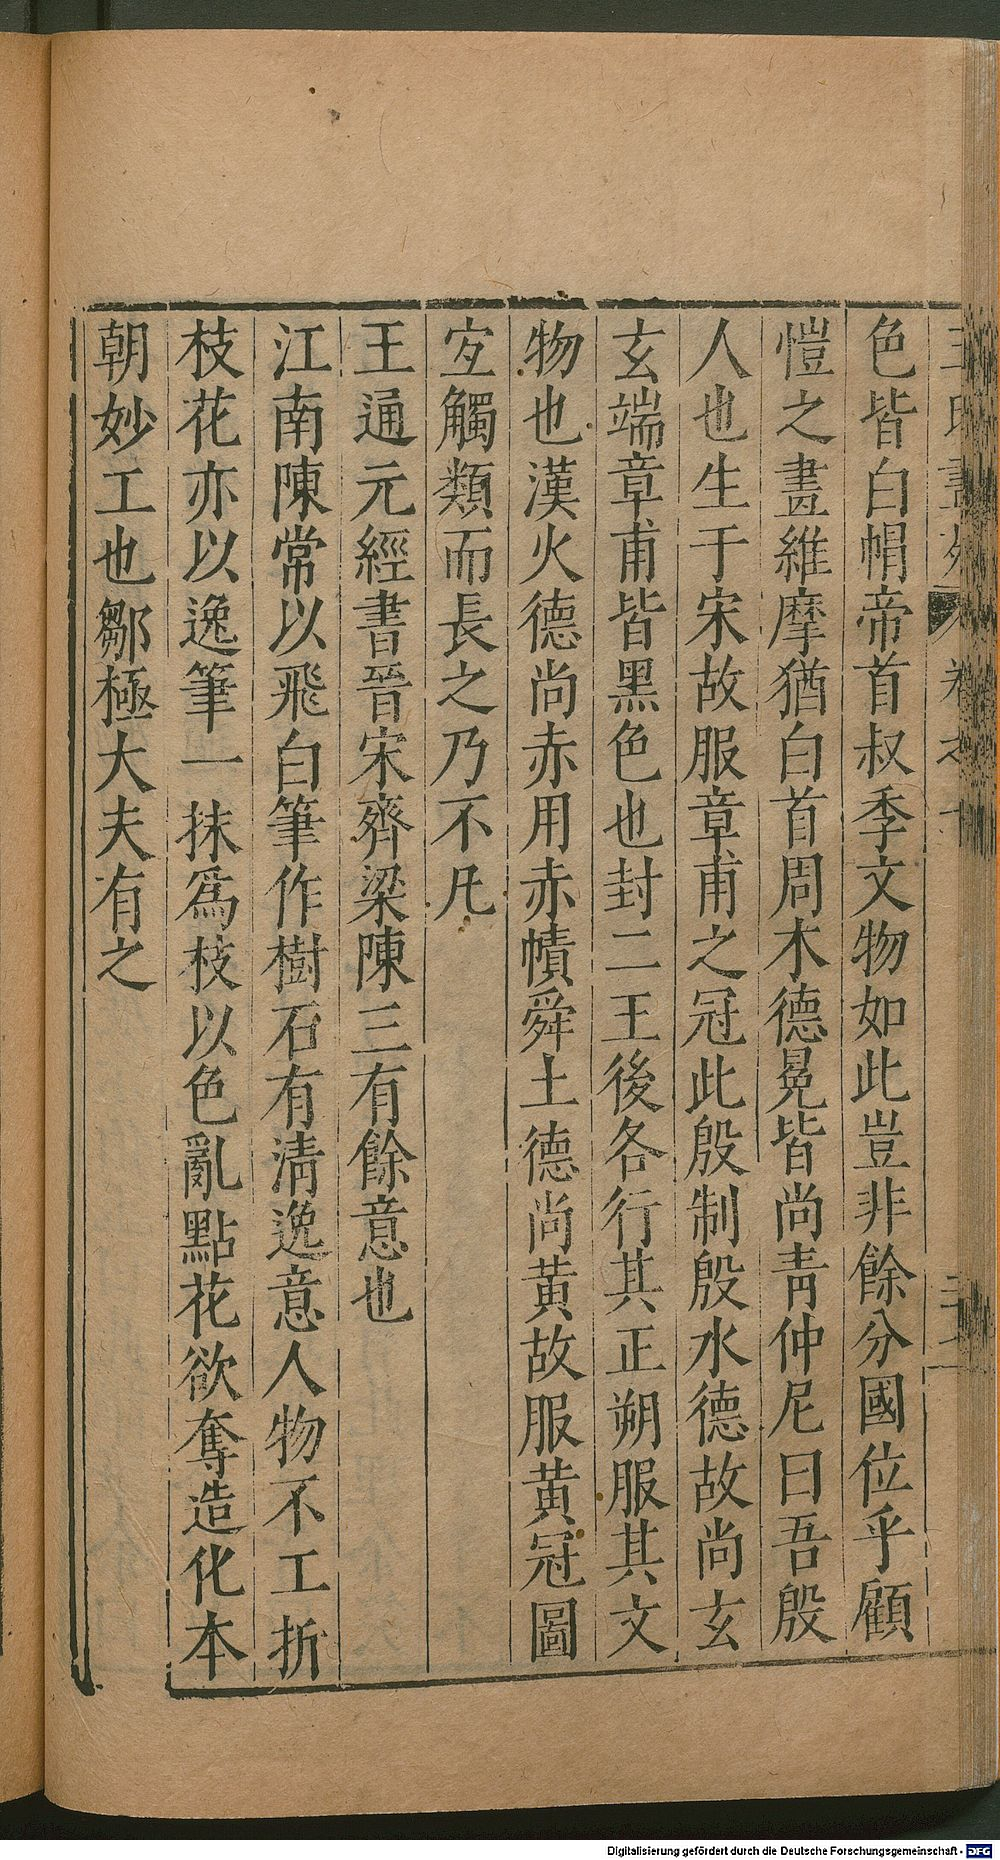 王氏畫苑 卷之十
色皆白帽帝首叔季文物如此豈非餘分國位乎顧
愷之畫維摩猶白首周木德冕皆尚青仲尼曰吾殷
人也生于宋故服章甫之冠此殷制殷水德故尚玄
玄端章甫皆黑色也封二王後各行其正朔服其文
物也漢火德尚赤用赤幘舜土德尚黃故服黃冠圖
宜觸類而長之乃不凡
王通元經書晉宋齊梁陳三有餘意也
江南陳常以飛白筆作樹石有清逸意人物不工折
枝花亦以逸筆一抹爲枝以色亂點花欲奪造化本
朝妙工也鄒極大夫有之
Digitalisierung gefördert durch die Deutsche Forschungsgemeinschaft - DFG